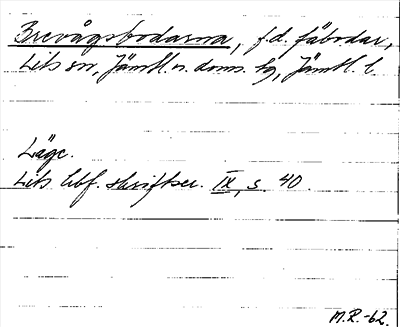 Brevågsbodarna, f.d. fäbodar,
Lits sn, Jämtl. n. doms. tg, Jämtl. l.
Läge.
Lits hbf. skriftser. IX, s. 40.
M.R.-62.